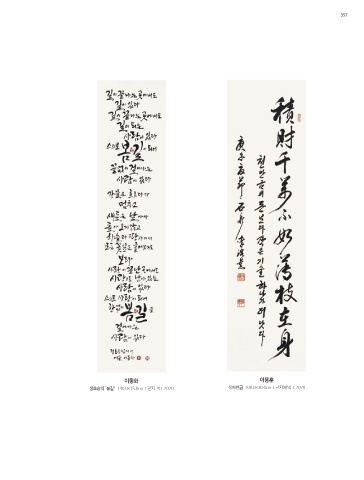 357
길이 끝나는 곳에서도
길이 있다
길이 끝나는 곳에서도
길이 되는
사람이 있다
스스로 봄길이 되어
끝없이 걸어가는
사람이 있다
강물은 흐르다가
멈추고
새들은 날아가
돌아오지 않고
하늘과 땅 사이의
모든 꽃잎은 흩어져도
보라
사랑이 끝난 곳에서도
사랑으로 남아있는
사람이 있다
스스로 사랑이 되어
한없이 봄길
걸어가는
사람이 있다
이동화
정호승의 '봄길' 2020
積財千萬不如薄技在身
천만금의 돈보다 작은 기술 하나가 더 낫다
庚子夏節 石
이용훈
2020